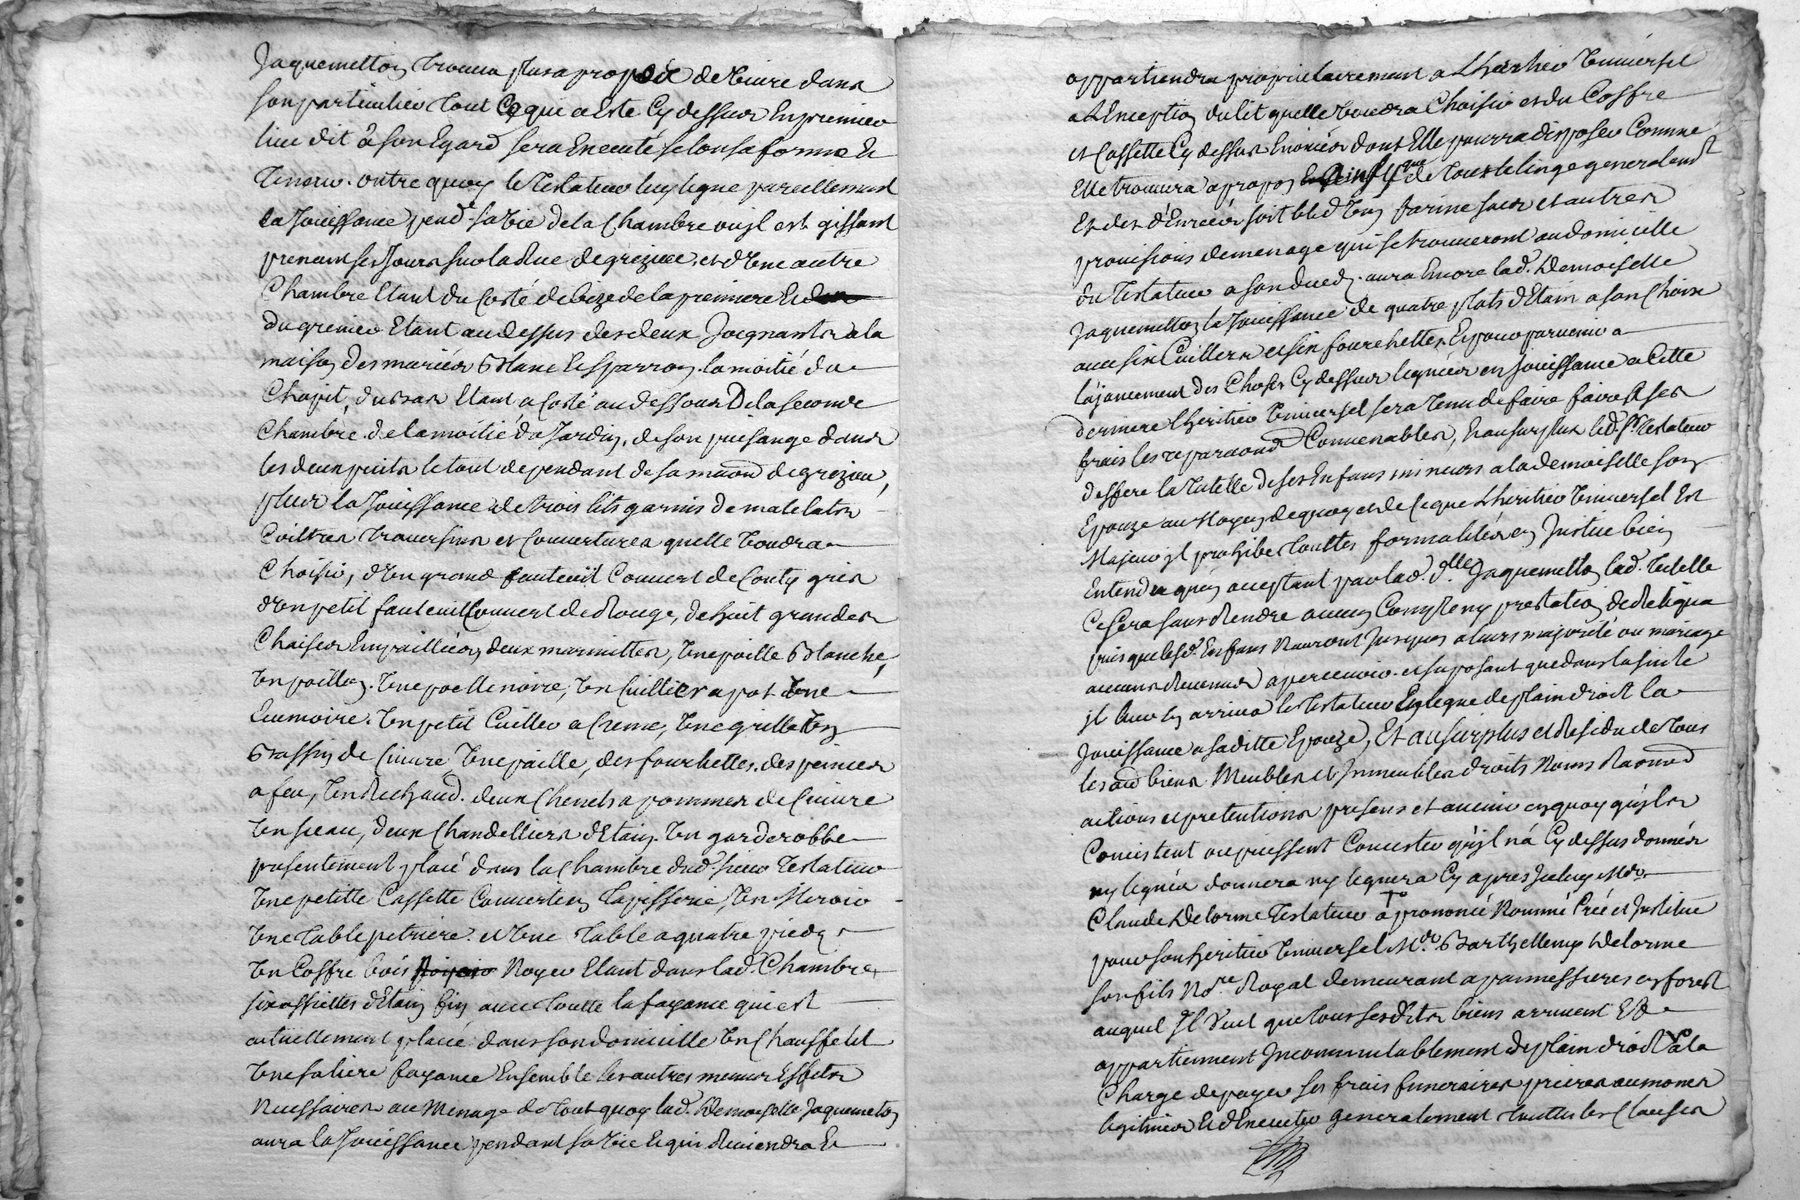 Jaquemetton trouva plus a propos de vivre dans
son particulier tout Ce qui a Esté Cy dessus En premier
lieu dit à son Egard sera Executé selon sa forme Et
Teneur. outre quoy le Testateur luy legue pareillement
La Jouissance pend.t sa vie de la Chambre ou jl est gissant
prenant ses Jours sur la Rue de grezieu, et d'Une autre
Chambre Etant du Costé de bize de la premiere Et
du grenier Etant au dessus des deux Joignants a la
maison des mariés Blanc Et sparron, la moitié du
Chapit, du bas Etant a Costé au dessous De la seconde
Chambre, de la moitié du Jardin, de son puisange dans
les deux puits le tout dependant de sa maison de grezieu,
plus la Jouissance de trois lits garnis de matelats
Coittres traversins et Couvertures quelle voudra
Choisir, d'Un grand fauteuil Couvert de Couty gris
d'un petit fauteuil Couvert de Rouge, de huit grandes
Chaises Empaillées, deux marmittes, Une poille Blanche,
Un poillon. Une poelle noire, Un Cuillier a pot Une
Ecumoire. Un petit Cuiller a Creme, Une grille Un
Bassin de Cuivre Une paille, des fourchettes, des pinces
a feu, Un Rechaud. deux Chenets a pommes de Cuivre
Un seau, deux Chandelliers d'Etain, Un garderobbe
presentement placé dans la Chambre dud. sieur Testateur
Une petitte Cassette Couverte en Tapisserie, Un Miroir
Une table petriere. et Une Table a quatre pieds
Un Coffre bois Noyer Etant dans lad. Chambre
six assiettes d'Etain fin avec toutte la fayance qui est
actuellement placée dans son domicille Un Chauffe lit
Une saliere fayance Ensemble les autres menus Effets
Necessaires au Menage de tout quoy lad. Demoiselle Jaquemeton
aura la Jouissance pendant sa vie Et qui Reviendra Et
appartiendra proprietairement a L'heritier Universel
a L'Exception du lit quelle voudra Choisir et du Coffre
et Cassette Cy dessus Enoncés dont Elle pourra disposer Comme
Elle trouvera a propos ainsy que de tout le linge generalem.t
Et des d'Enrées soit bled Vin farine sucr et autres
provisions de menage qui se trouveront au domicille
du Testateur a son deced. aura Encore lad. Demoiselle
Jaquemetton la Jouissance de quatre plats d'Etain a son Choix
avec six Cuillers et six fourchettes, Et pour parvenir a
l'ajancement des Choses Cy dessus leguées en Jouissance a Cette
derniere L'heritier Universel sera tenu de faire faire A ses
frais les reparaons Convenables, Et au surplus led. sr. Testateur
deffere la Tutelle de ses Enfans mineurs a la demoiselle son
Epouze au Moyen de quoy et de Ce que L'heritier Universel Est
Majeur jl prohibe touttes formalités en Justice bien
Entendu quen acceptant par lad. d.lle Jaquemetton lad. tutelle
Ce sera sans Rendre aucun Compte ny prestation de Reliqua
puis que lesd. Enfans N'auront Jusques a leurs majorité ou mariage
aucuns Revenus a percevoir. et suposant que dans la suite
jl leur En arriva le Testateur En legue de plain droit la
Jouissance a sa ditte Epouze, Et au surplus et Residu de tous
les aud biens Meubles et Jmmeubles droits Noms Raisons
actions et pretentions presens et avenir en quoy quils
Consistent ou puissent Consister qu'jl n'a Cy dessus donnés
ny legués donnera ny leguera Cy apres Jceluy Mtre
Claude Delorme Testateur a prononcé Nommé Créé et Jnstitué
pour son heritier Universel Mtre Barthellemy Delorme
son fils Nore Royal demeurant a pannessieres en forest
auquel Jl veut que tous sesdits biens arrivent Et
appartiennent Jncommutablement de plain droit a la
Charge de payer ses frais funeraires prieres aumones
legitimes Et d'Executer generalement touttes les Clauses